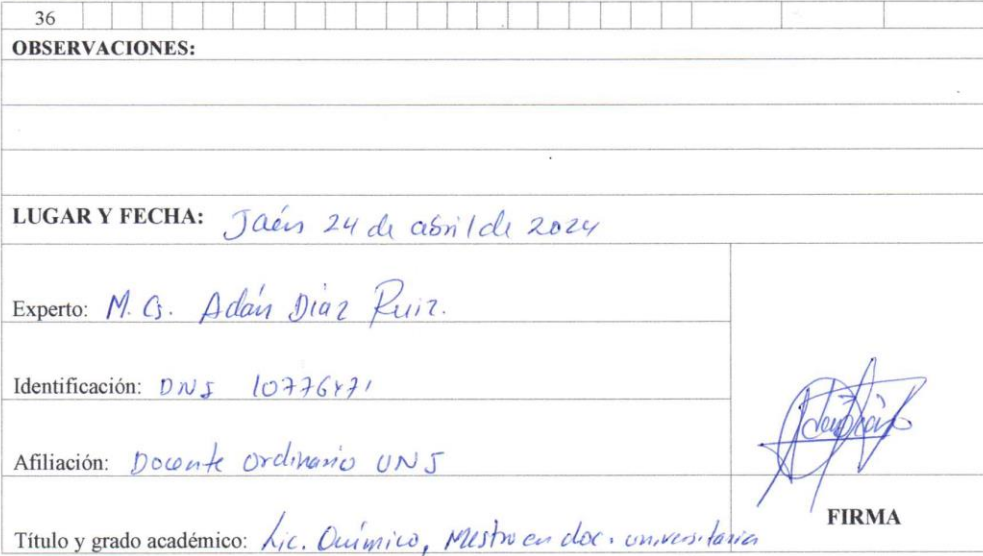 36
OBSERVACIONES:
LUGAR Y FECHA: Jaén 24 de abril de 2024
Experto: M. Cs. Adán Díaz Ruiz.
Identificación: DNI
Afiliación: Docente Ordinario UNJ
Título y grado académico: Lic. Químico, Mestro en doc. universitaria
FIRMA